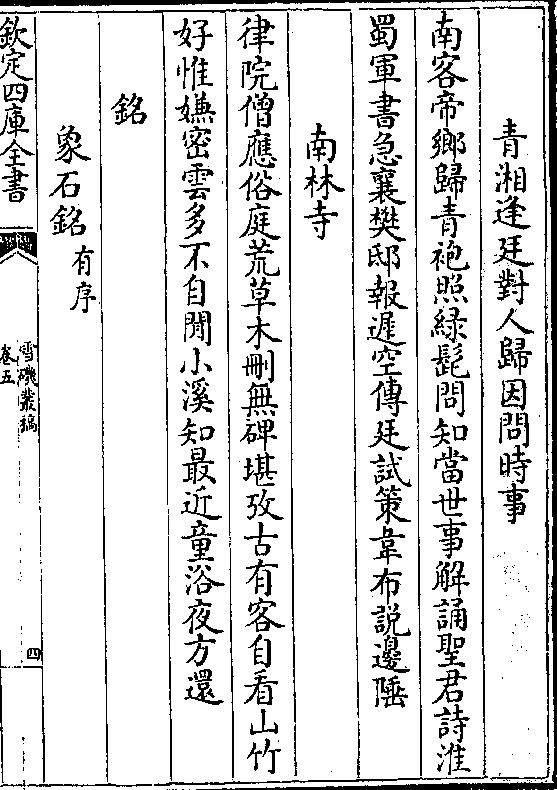 青湘逢廷對人歸因問時事
南客帝鄉歸青袍照緑髭問知當世事解誦聖君詩淮
蜀軍書急襄樊邸報遲空傳廷試策韋布説邊陲
南林寺
律院僧應俗庭荒草木刪無碑堪攷古有客自看山竹
好惟嫌密雲多不自閒小溪知最近童浴夜方還
銘
象石銘有序
欽定四庫全書
雪磯叢稿
卷五
四